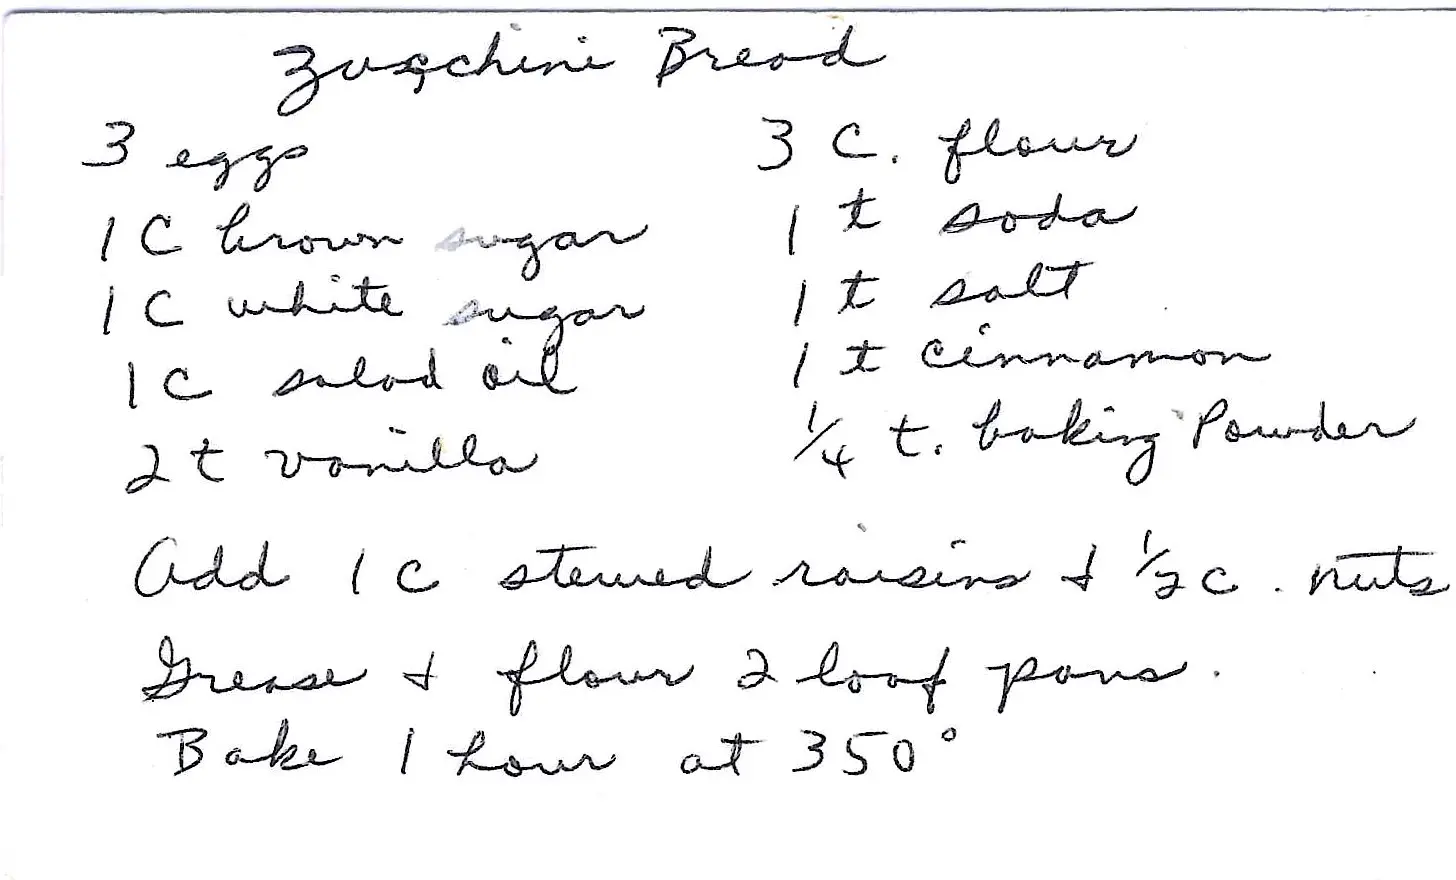 Zucchini Bread
3 eggs
1 C brown sugar
1 C white sugar
1 C salad oil
2 t vanilla
3 C. flour
1 t soda
1 t salt
1 t cinnamon
1/4 t. baking Powder
Add 1 c stewed raisins & 1/2 c. nuts
Grease & flour 2 loaf pans.
Bake 1 hour at 350°